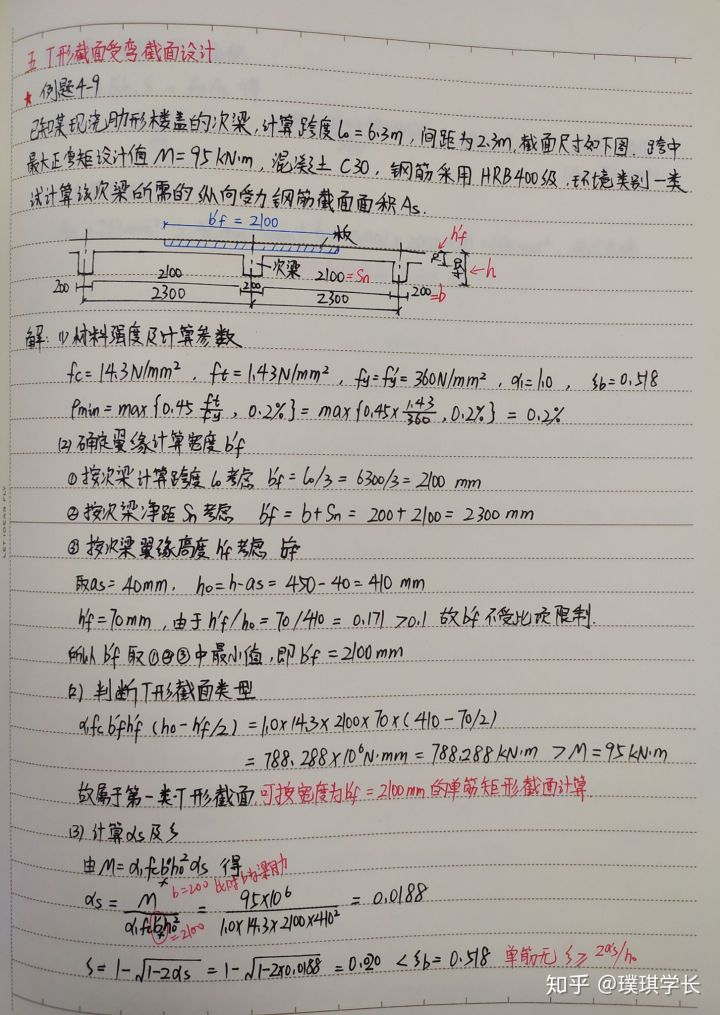 五 T形截面受弯截面设计
★ 例题4-9
已知某现浇肋形楼盖的次梁，计算跨度l₀=6.3m，间距为2.3m，截面尺寸如下图. 跨中
最大正弯矩设计值M=95kN·m，混凝土C30，钢筋采用HRB400级，环境类别一类
试计算该次梁所需的纵向受力钢筋截面面积As.
b'f=2100
板
h'f
次梁
h
2100
2100=Sn
200
200
200=b
2300
2300
解：(1)材料强度及计算参数
fc=14.3N/mm²，ft=1.43N/mm²，fy=f'y=360N/mm²，α₁=1.0，ξb=0.518
ρmin=max{0.45 ft/fy，0.2%}=max{0.45×1.43/360，0.2%}=0.2%
(2)确定翼缘计算宽度b'f
①按次梁计算跨度l₀考虑 b'f=l₀/3=6300/3=2100 mm
②按次梁净距Sn考虑 b'f=b+Sn=200+2100=2300mm
③按次梁翼缘高度h'f考虑 b'f
取as=40mm，h₀=h-as=450-40=410 mm
h'f=70mm，由于h'f/h₀=70/410=0.171>0.1 故b'f不受此项限制.
所以b'f取①②③中最小值，即b'f=2100mm
(2) 判断T形截面类型
α₁fcb'fh'f(h₀-h'f/2)=1.0×14.3×2100×70×(410-70/2)
=788.288×10⁶N·mm=788.288kN·m >M=95kN·m
故属于第一类T形截面,可按宽度为b'f=2100mm的单筋矩形截面计算.
(3) 计算αs及ξ
由M=α₁fcb'fh₀²αs 得
b=200
αs=M/α₁fcbh₀²=95×10⁶/1.0×14.3×2100×410²=0.0188
=2100
ξ=1-√1-2αs=1-√1-2×0.0188=0.020<ξb=0.518 单筋无ξ≥2a's/h₀
LET IDEAS FLY
知乎 @璞琪学长